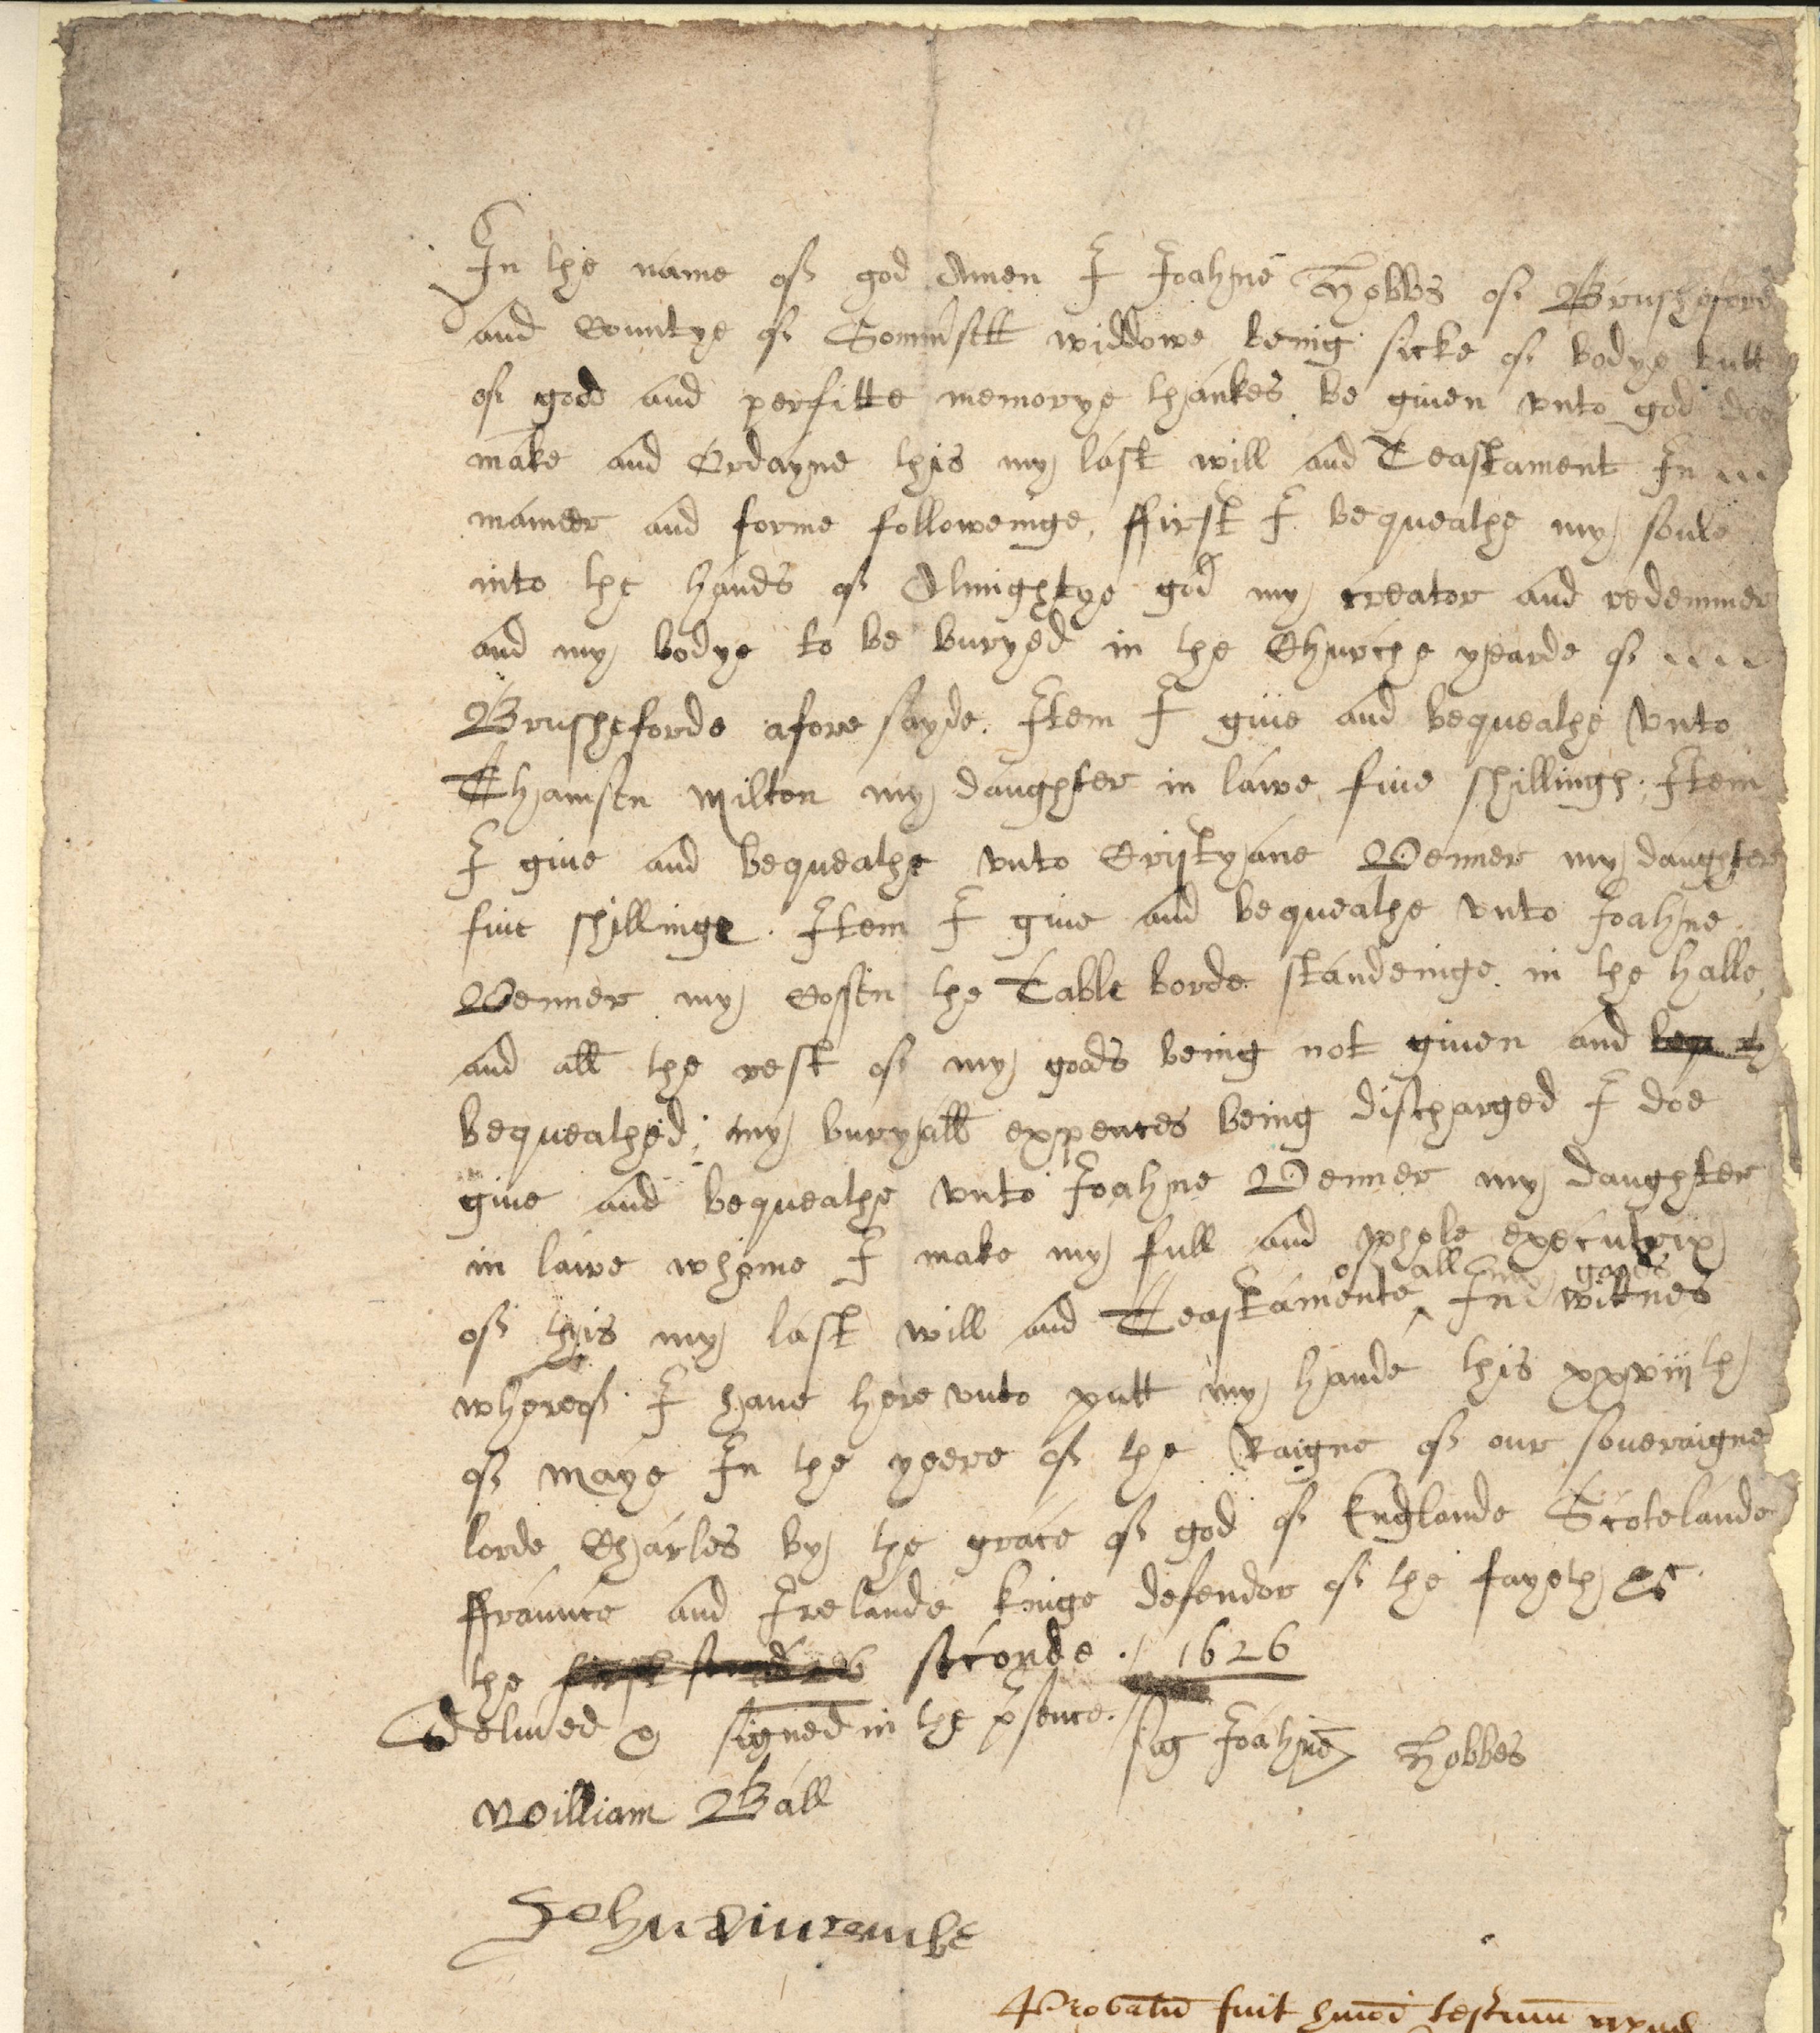 In the name of god Amen I Joahne Hobbs of Brusheford
and Countye of Sommsett widdowe being sicke of bodye butt
of good and perfitte memorye thankes be given vnto god doe
make and Ordayne this my last will and Teastament In
manner and forme followeinge, ffirst I bequeathe my soule
into the hands of Almightye god my creator and redemmer
and my bodye to be buryed in the Churche yearde of
Brusheforde afore sayde. Item I giue and bequeathe vnto
Thamsen Milton my daughter in lawe fiue shillings. Item
I giue and bequeathe vnto Cristyane Venner my daughter
fiue shillinge. Item I giue and bequeathe vnto Joahne
Venner my Cossen the Table borde standeinge in the halle
and all the rest of my goods being not giuen and
bequeathed; my buryall expences being discharged I doe
giue and bequeathe vnto Joahne Venner my daughter
in lawe whome I make my full and whole executrix
of all my goods
of this my last will and Teastamente ^ In wittnes
whereof I haue here vnto putt my hande this xxviijth
of Maye In the yeere of the Raigne of our soueraigne
lorde Charles by the grace of god of Englande Scotelande
ffraunce and Irelande Kinge defendor of the fayeth &c
the seconde. 1626
Deliued & signed in the psence
sig Joahne Hobbes
William Ball
John
Probatu fuit hmoi testum apud